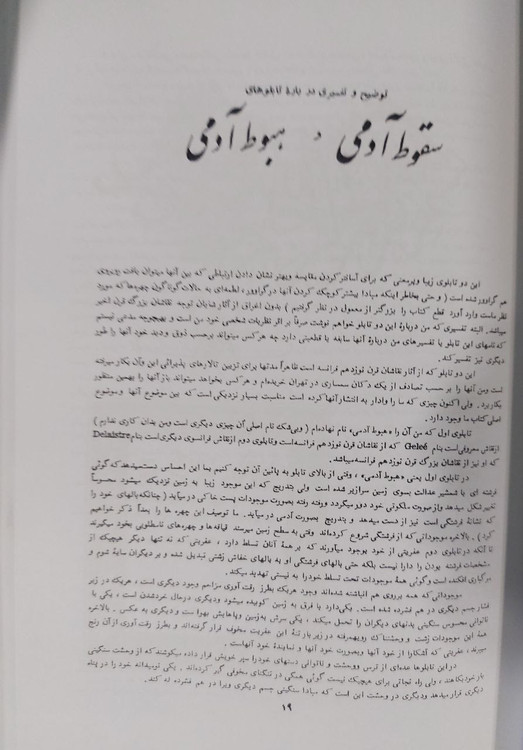 توضیح و تفسیری در باره تابلوهای
سقوط آدمی و هبوط آدمی
این دو تابلوی زیبا وپرمعنی که برای آسانتر کردن مقایسه وبهتر نشان دادن ارتباطی که بین آنها میتوان یافت روبروی
هم گراور شده است ( و حتی بخاطر اینکه مبادا بیشتر کوچک کردن آنها در گراور، لطمه‌ای به حالات گوناگون چهره‌ها که مورد
نظر ماست وارد آورد قطع کتاب را بزرگتر از معمول در نظر گرفتیم ) بدون اغراق از آثار شایان توجه نقاشان بزرگ قرن اخیر
میباشد. البته تفسیری که من دربارهٔ این دو تابلو خواهم نوشت صرفاً بر اثر نظریات شخصی خود من است و بهیچوجه مدعی نیستم
که نامهای این تابلو یا تفسیرهای من دربارهٔ آنها سابقه یا قطعیتی دارد چه هرکس میتواند برحسب ذوق ودید خود آنها را طور
دیگری نیز تفسیر کند.
این دو تابلو که از آثار نقاشان قرن نوزدهم فرانسه است ظاهراً مدتها برای تزیین تالارهای پذیرائی این وآن بکار میرفته
است ومن آنها را بر حسب تصادف از یک دکان سمساری در تهران خریده‌ام و هرکس بخواهد میتواند باز آنها را بهمین منظور
بکار برد. ولی اکنون چیزی که ما را وادار به انتشار آنها کرده است مناسبت بسیار نزدیکی است که بین موضوع آنها وموضوع
اصلی کتاب ما وجود دارد.
تابلوی اول که من آن را «هبوط آدمی» نام نهاده‌ام (وبی‌شک نام اصلی آن چیزی دیگری است ومن بدان کاری ندارم )
ازنقاش معروفی‌است بنام Geleé که از نقاشان قرن نوزدهم فرانسه‌است وتابلوی دوم ازنقاش فرانسوی دیگری است بنام Delaistre
که او نیز از نقاشان بزرگ قرن نوزدهم فرانسه‌میباشد.
در تابلوی اول یعنی «هبوط آدمی» ، وقتی از بالای تابلو به پائین آن توجه کنیم بما این احساس دست‌میدهدکه گوئی
فرشته ای با شمشیر عدالت بسوی زمین سرازیر شده است ولی بتدریج که این موجود زیبا به زمین نزدیک میشود محسوساً
تغییرشکل میدهد وازصورت ملکوتی خود دور میگردد ورفته رفته بصورت موجودات پست خاکی در میآید (چنانکه‌بالهای خود را
که نشانهٔ فرشتگی است نیز از دست میدهد و بتدریج بصورت آدمی در میآید. ما توصیف این چهره ها را بعداً ذکر خواهیم
کرد ). بالاخره موجوداتی که از فرشتگی شروع کرده‌اند وقتی به سطح زمین میرسند قیافه‌ها و چهره‌های نامطلوبی بخود میگیرند
تا آنکه در تابلوی دوم عفریتی از خود بوجود میآورند که بر همهٔ آنان تسلط دارد ، عفریتی که نه تنها دیگر هیچیک از
مشخصات فرشته بودن را دارا نیست بلکه حتی بالهای فرشتگی او به بالهای خفاش زشتی تبدیل شده و بر دیگران سایهٔ شوم و
مرگباری افکنده است وگوئی همهٔ موجودات تحت تسلط خود را به نیستی تهدید میکند.
موجوداتی‌که همه برروی هم انباشته شده‌اند وجود هریک بطرز رقت‌آوری مزاحم وجود دیگری است ، هریک در زیر
فشار جسم دیگری در هم فشرده شده است. یکی‌دارد با فرق به زمین کوبیده میشود ودیگری درحال خردشدن است، یکی با
ناتوانی محسوس سنگینی بدنهای دیگران را تحمل میکند ، یکی سرش به‌زمین وپاهایش بهوا است و دیگری به عکس . بالاخره
همهٔ این موجودات زشت و وحشتناک رویهمرفته در زیر بار تنهٔ این عفریت مخوف قرار گرفته‌اند و بطرز رقت آوری از آن رنج
میبرند ، عفریتی که آشکارا از خود آنها وبصورت خود آنها و نمایندهٔ خود آنهاست .
در این تابلوها عده‌ای از ترس و وحشت و ناتوانی دستهای خود را سپر خویش قرار داده میکوشند که از وحشت سنگینی
بار خود بکاهند ، ولی راه نجاتی برای هیچیک نیست گوئی همگی در تنگنای مخوفی گیر کرده‌اند . یکی نومیدانه خود را در پناه
دیگری قرار میدهد ودیگری در وحشت این است که مبادا سنگینی جسم دیگری ویرا در هم فشرده له کند.
۱۹